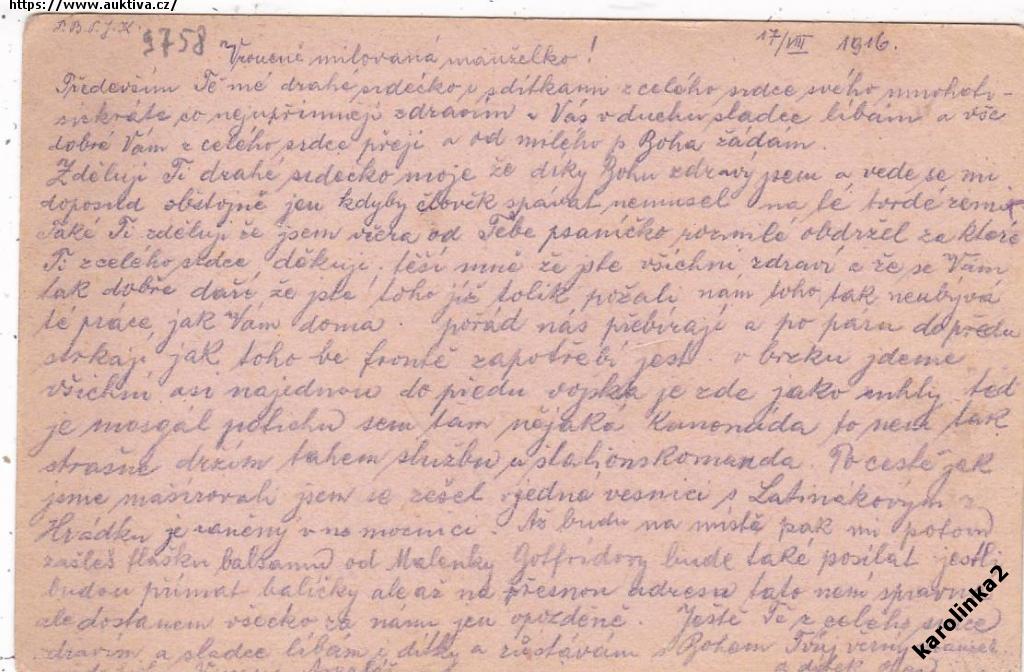 https://www.auktiva.cz/
P. B. P. J. K. 9758 17/VIII 1916.
Vroucně milovaná manželko!
Především Tě mé drahé srdéčko i s dítkami z celého srdce svého mnohoti-
sickráte co nejupřímněji zdravím a Vás v duchu sladce líbám a vše
dobré Vám z celého srdce přeji a od milého p Boha žádám.
Zděluji Ti drahé srdéčko moje že díky Bohu zdravý jsem a vede se mi
doposud obstojně jen kdyby člověk spávat nemusel na té tvrdé zemi
Také Ti zděluji že jsem včera od Tebe psaníčko rozmilé obdržel za které
Ti z celého srdce děkuji. těší mně že jste všichni zdraví a že se Vám
tak dobře daří že jste toho již tolik požali nám toho tak neubývá
té práce jak Vám doma. pořád nás přebírají a po páru dopředu
strkají jak toho ve frontě zapotřebí jest. v brzku jdeme
všichni asi najednou do předu vojska je zde jako mhly teď
je potichu sem tam nějaká Kanonáda to není tak
strašné držím tahem službu u stationskomanda. Po cestě jak
jsme mašírovali jsem se zešel v jedné vesnici s z
Hrádku je raněný v nemocnici. Až budu na místě pak mi potom
zašleš flašku balsamu od Malenky Gotfridovy bude také posílat jestli
budou přímat balíčky ale až na přesnou adresu tato není správná
ale dostanem všecko za námi jen opozděně. Ještě Tě z celého srdce
zdravím a sladce líbám i dítky a zůstávám s Bohem Tvůj věrný manžel
karolinka2